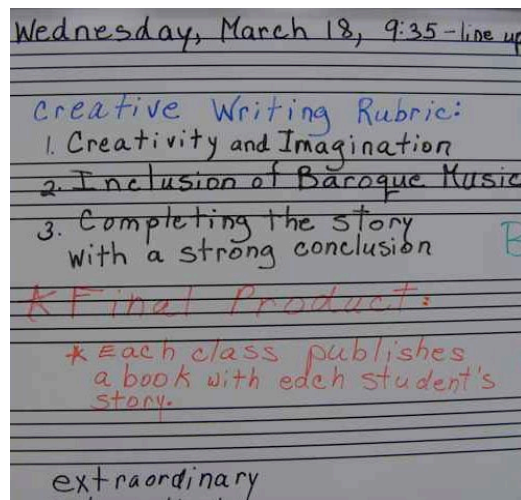 Wednesday, March 18, 9:35-line up
Creative Writing Rubric:
1. Creativity and Imagination
2. Inclusion of Baroque Music
3. Completing the story
with a strong conclusion
B
* Final Product:
* Each class publishes
a book with each student's
story.
extraordinary